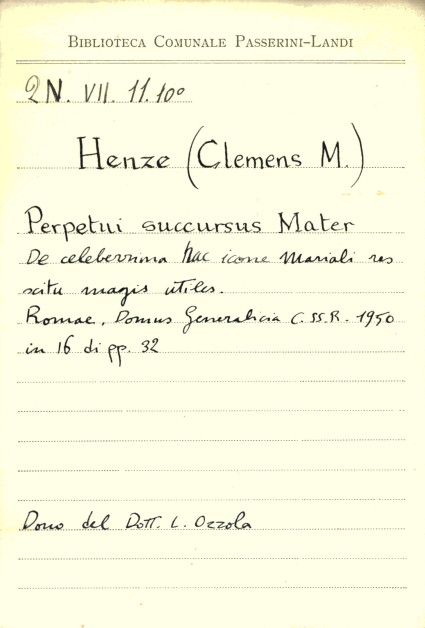 BIBLIOTECA COMUNALE PASSERINI-LANDI
2N. VII. 11.10°
Henze (Clemens M.)
Perpetui succursus Mater
De celeberrima hac icone Mariali res
scitu magis utiles.
Romae, Domus Generalicia C.SS.R. 1950
in 16 di pp. 32
Dono del Dott. L. Ozzola